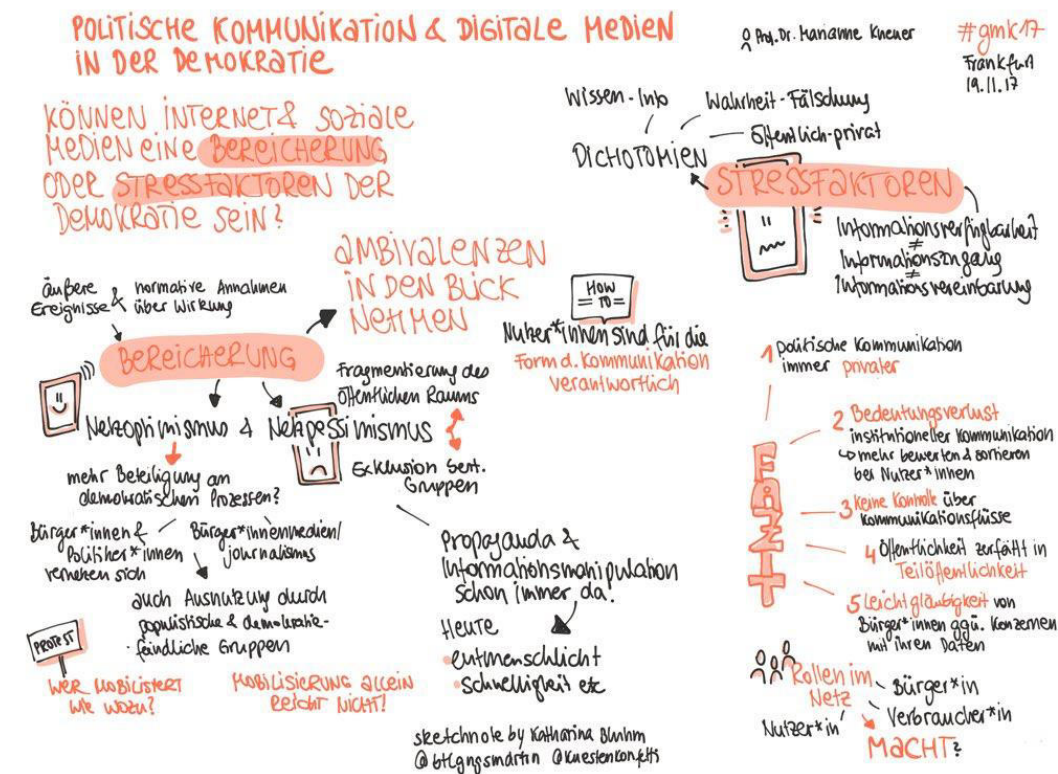 POLITISCHE KOMMUNIKATION & DIGITALE MEDIEN
IN DER DEMOKRATIE
Prof. Dr. Marianne Kneuer
#gmk17
Frankfurt
19.11.17
KÖNNEN INTERNET & SOZIALE
MEDIEN EINE BEREICHERUNG
ODER STRESSFAKTOREN DER
DEMOKRATIE SEIN?
Wissen - Info
Wahrheit - Fälschung
öffentlich-privat
DICHOTOMIEN
STRESSFAKTOREN
Informationsverfügbarkeit
≠
Informationszugang
≠
Informationsvereinbarung
AMBIVALENZEN
IN DEN BLICK
NEHMEN
äußere
Ereignisse & normative Annahmen
über Wirkung
BEREICHERUNG
HOW
= TO =
Nutzer*innen sind für die
Form d. Kommunikation
verantwortlich
Netzoptimismus & Netzpessimismus
Fragmentierung des
öffentlichen Raums
Exklusion best.
Gruppen
mehr Beteiligung an
demokratischen Prozessen?
Bürger*innen &
Politiker*innen
vernetzen sich
Bürger*innenmedien/
journalismus
auch Ausnutzung durch
populistische & demokratie-
feindliche Gruppen
PROTEST
WER MOBILISIERT
WIE WOZU?
MOBILISIERUNG ALLEIN
REICHT NICHT!
Propaganda &
Informationsmanipulation
schon immer da!
HEUTE
entmenschlicht
schnelligkeit etc
FAZIT
1 politische Kommunikation
immer privater
2 Bedeutungsverlust
institutioneller Kommunikation
↳ mehr bewerten & sortieren
bei Nutzer*innen
3 Keine Kontrolle über
Kommunikationsflüsse
4 Öffentlichkeit zerfällt in
Teilöffentlichkeit
5 Leichtgläubigkeit von
Bürger*innen ggü. Konzernen
mit ihren Daten
Rollen im
Netz
Bürger*in
Verbraucher*in
Nutzer*in
MACHT?
sketchnote by Katharina Bluhm
@kuestenkonfetti